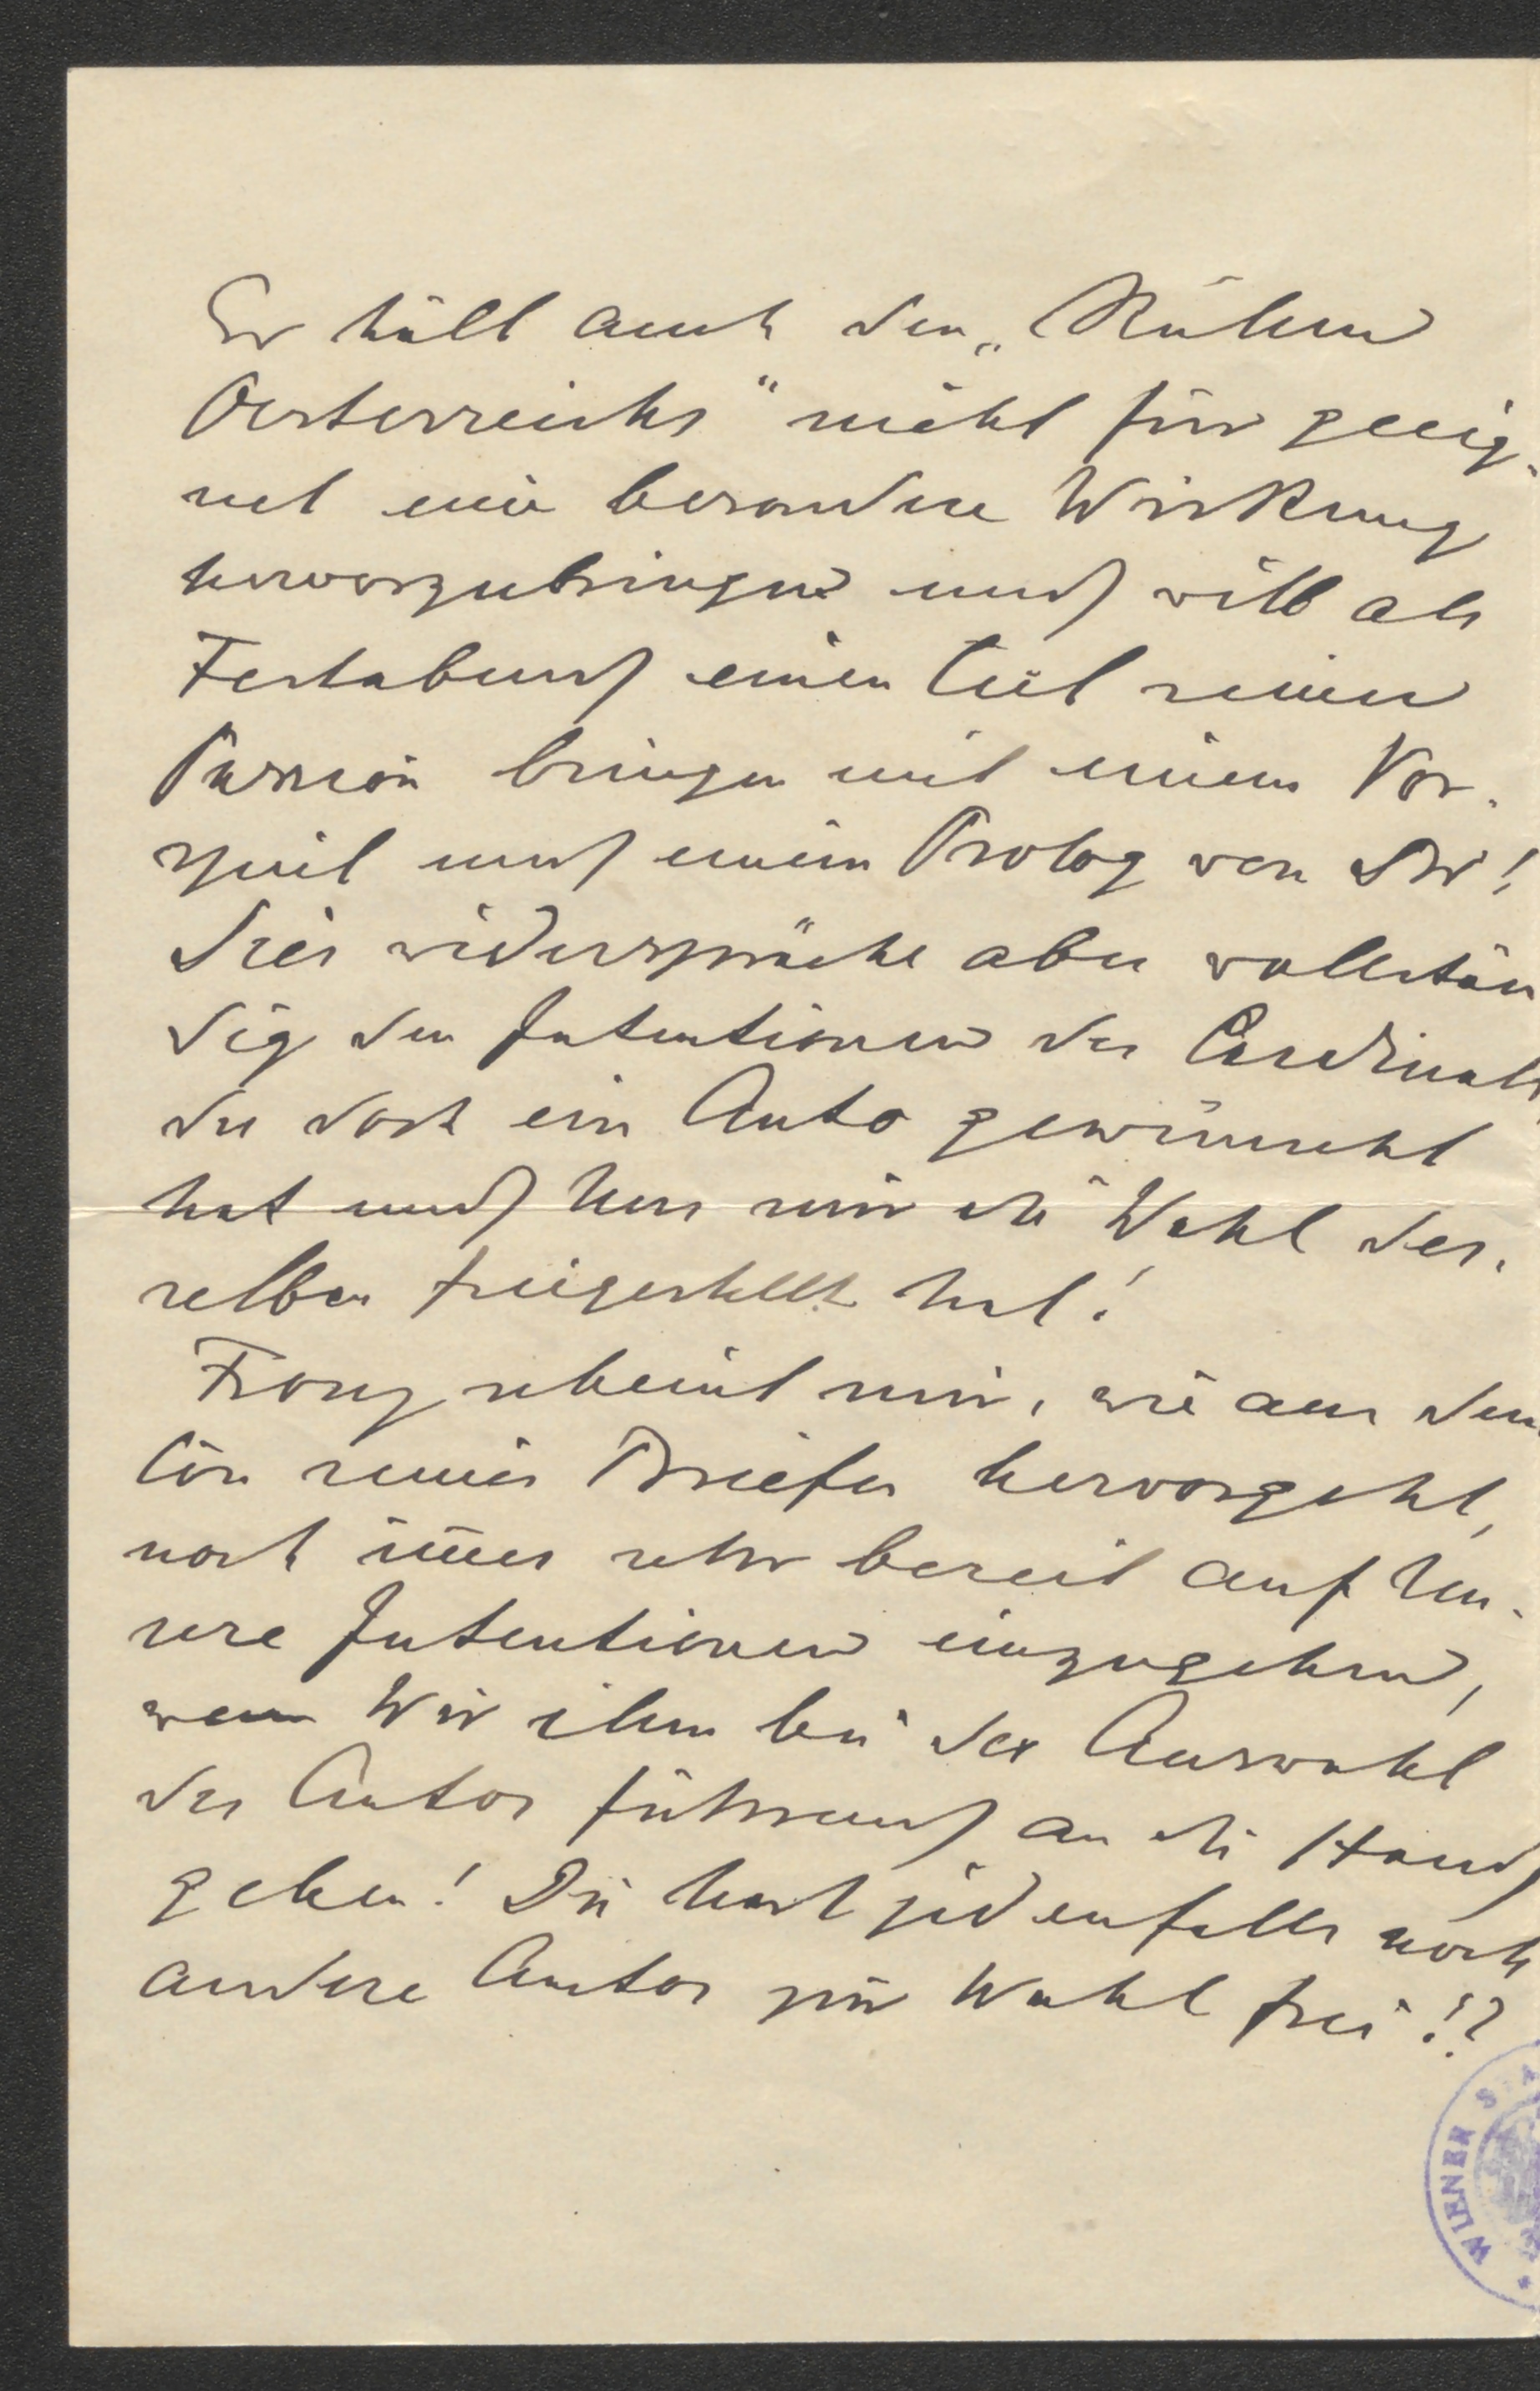 Er hält auch den „Ruhm
Oesterreichs" nicht für geeig-
net eine besondere Wirkung
hervorzubringen und will als
Festabend einen Teil seiner
Passion bringen mit einem Vor-
spiel und einem Prolog von Dir!
Dies widerspräche aber vollstän
dig den Intentionen des Cardinals
der doch ein Auto gewünscht
hat und Uns nur die Wahl des-
selben freigestellt hat!
Franz scheint mir, wie aus dem
Ton seines Briefes hervorgeht,
noch immer sehr bereit auf Un-
sere Intentionen einzugehen,
wenn Wir ihm bei der Auswahl
des Autos führend an die Hand
gehen! Du hast jedenfalls noch
andere Autos zur Wahl frei!?
WIENER S